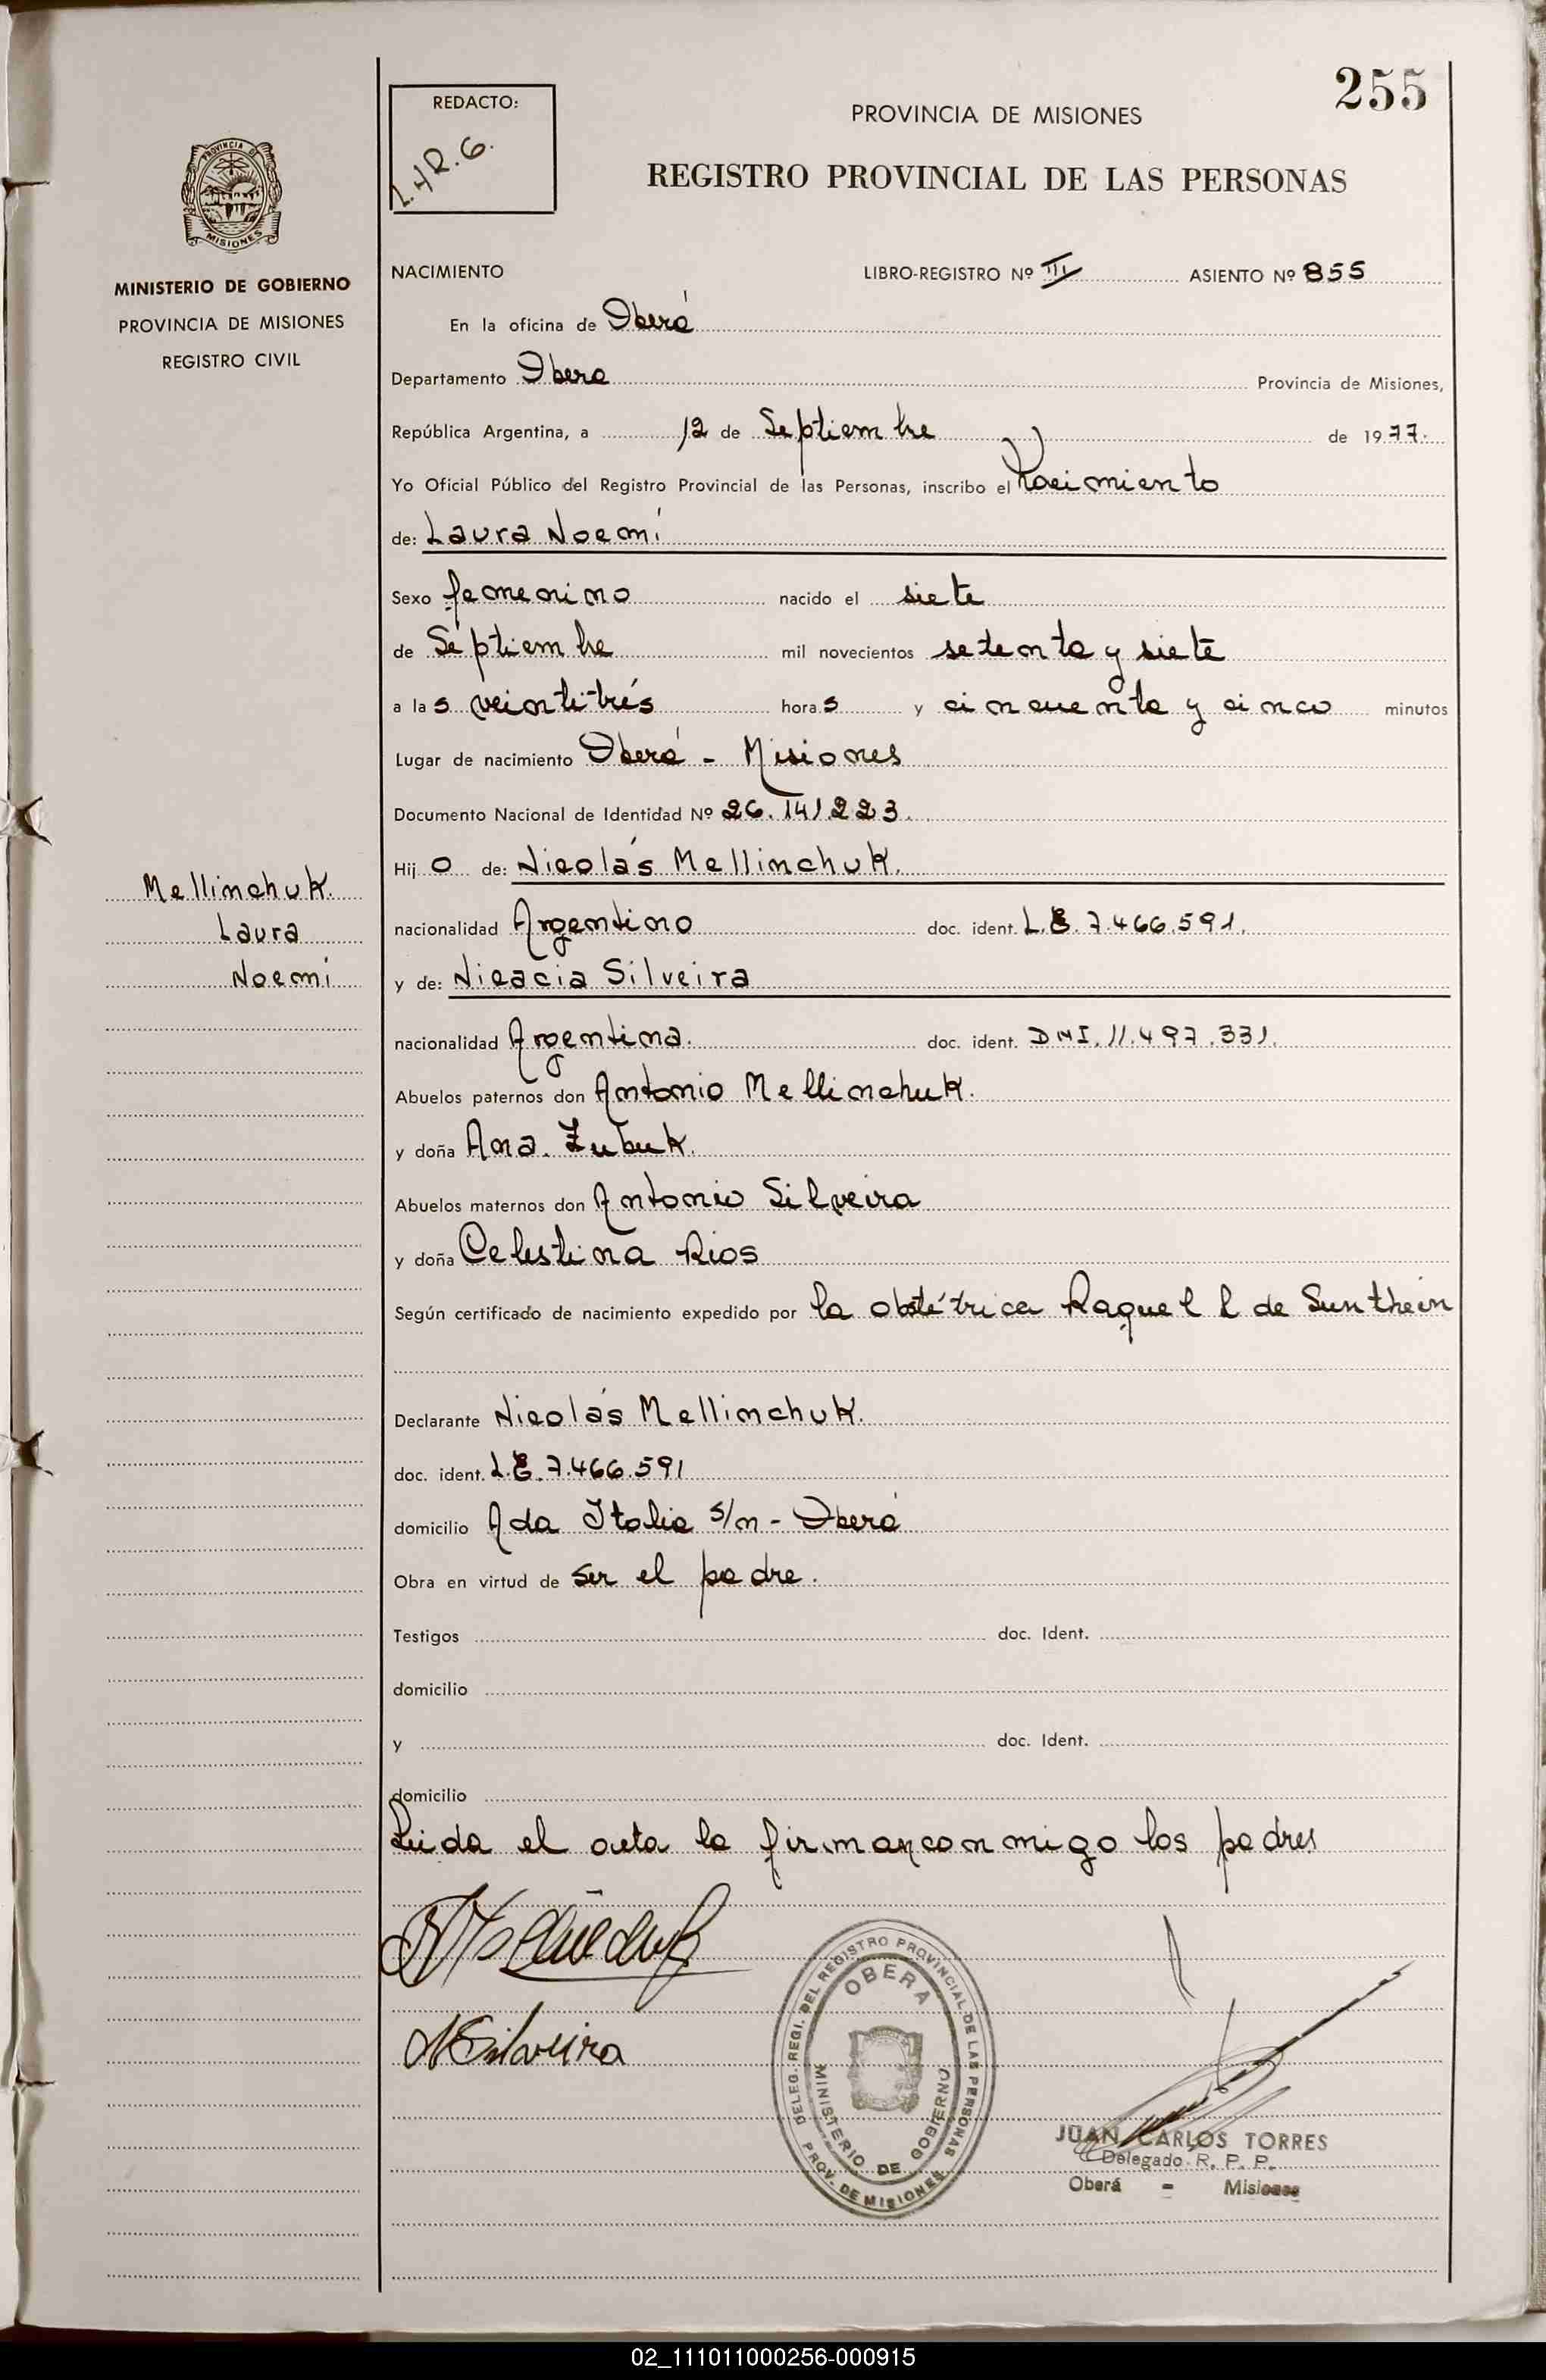 255
REDACTO:
L.H.R.G.
PROVINCIA DE MISIONES
REGISTRO PROVINCIAL DE LAS PERSONAS
PROVINCIA DE
MISIONES
MINISTERIO DE GOBIERNO
PROVINCIA DE MISIONES
REGISTRO CIVIL
NACIMIENTO LIBRO-REGISTRO Nº III ASIENTO Nº 855
En la oficina de Oberá
Departamento Obera Provincia de Misiones,
República Argentina, a 12 de Septiembre de 1977.
Yo Oficial Público del Registro Provincial de las Personas, inscribo el Nacimiento
de: Laura Noemí
Sexo femenino nacido el siete
de Septiembre mil novecientos setenta y siete
a las veintitrés horas y cincuenta y cinco minutos
Lugar de nacimiento Oberá - Misiones
Documento Nacional de Identidad Nº 26.141.223.
Hijo de: Nicolás Mellinchuk.
Mellinchuk.
Laura
Noemi
nacionalidad Argentino doc. ident. L.E. 7.466.591.
y de: Nicacia Silveira
nacionalidad Argentina. doc. ident. DNI. 11.497.331.
Abuelos paternos don Antonio Mellinchuk.
y doña Ana. Zubuk.
Abuelos maternos don Antonio Silveira
y doña Celestina Rios
Según certificado de nacimiento expedido por la obstétrica Raquel L de Sunthein
Declarante Nicolás Mellinchuk.
doc. ident. L.E. 7.466.591
domicilio Ada Italia s/n - Oberá
Obra en virtud de ser el padre.
Testigos doc. Ident.
domicilio
y doc. Ident.
domicilio
Leida el acta la firman conmigo los padres
NSilveira
DELEG. REGI. DEL REGISTRO PROVINCIAL DE LAS PERSONAS
OBERA
MINISTERIO DE GOBIERNO
PROV. DE MISIONES
JUAN CARLOS TORRES
Delegado R. P. P.
Oberá - Misiones
02_111011000256-000915